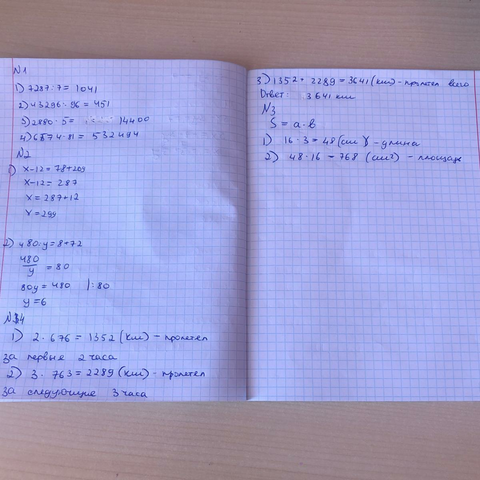 N1
1) 7287:7 = 1041
2) 43296:96 = 451
3) 2880·5 = 14400
4) 6574·81 = 532494
N2
1) x-12 = 78+209
x-12 = 287
x = 287+12
x = 299
2) 480:y = 8+72
480/y = 80
80y = 480 |:80
y = 6
N4
1) 2·676 = 1352 (км) - пролетел
за первые 2 часа
2) 3·763 = 2289 (км) - пролетел
за следующие 3 часа
3) 1352 + 2289 = 3641 (км) - пролетел всего
Ответ: 3641 км
N3
S = a·b
1) 16·3 = 48 (см) - длина
2) 48·16 = 768 (см²) - площадь